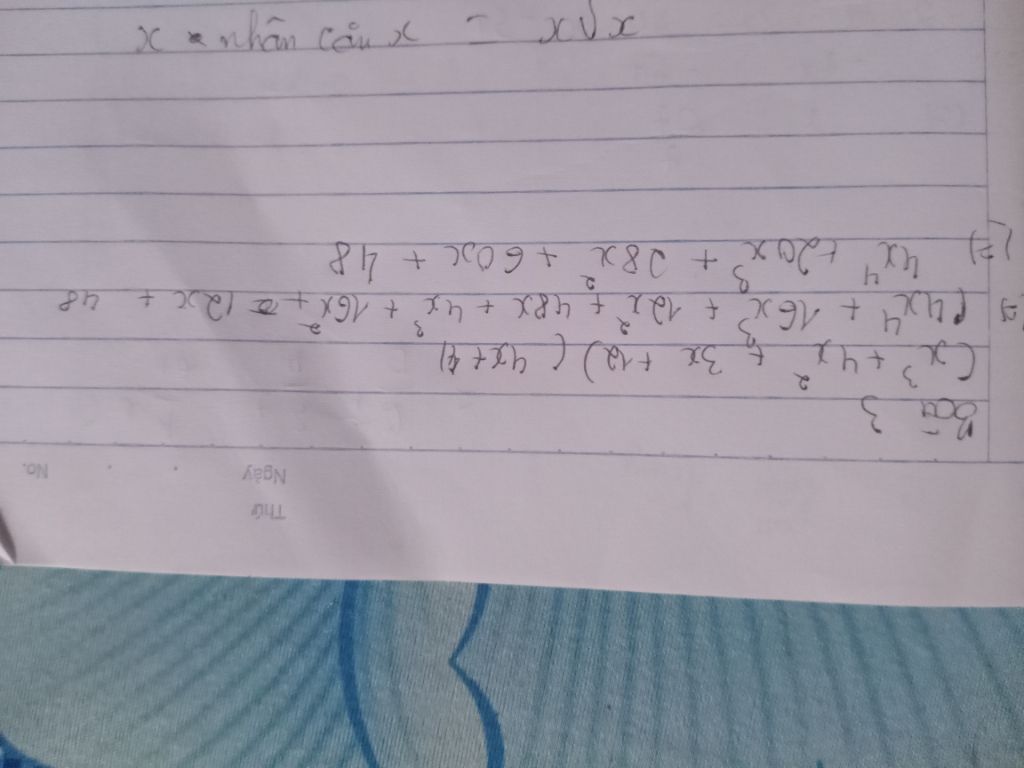 Thứ
Ngày No.
Bài 3
(x³ + 4x² + 3x + 12) ( 4x + 4)
(=) (4x⁴ + 16x³ + 12x² + 48x + 4x³ + 16x² + 12x + 48
(=) 4x⁴ + 20x³ + 28x² + 60x + 48
x nhân căn x = x√x